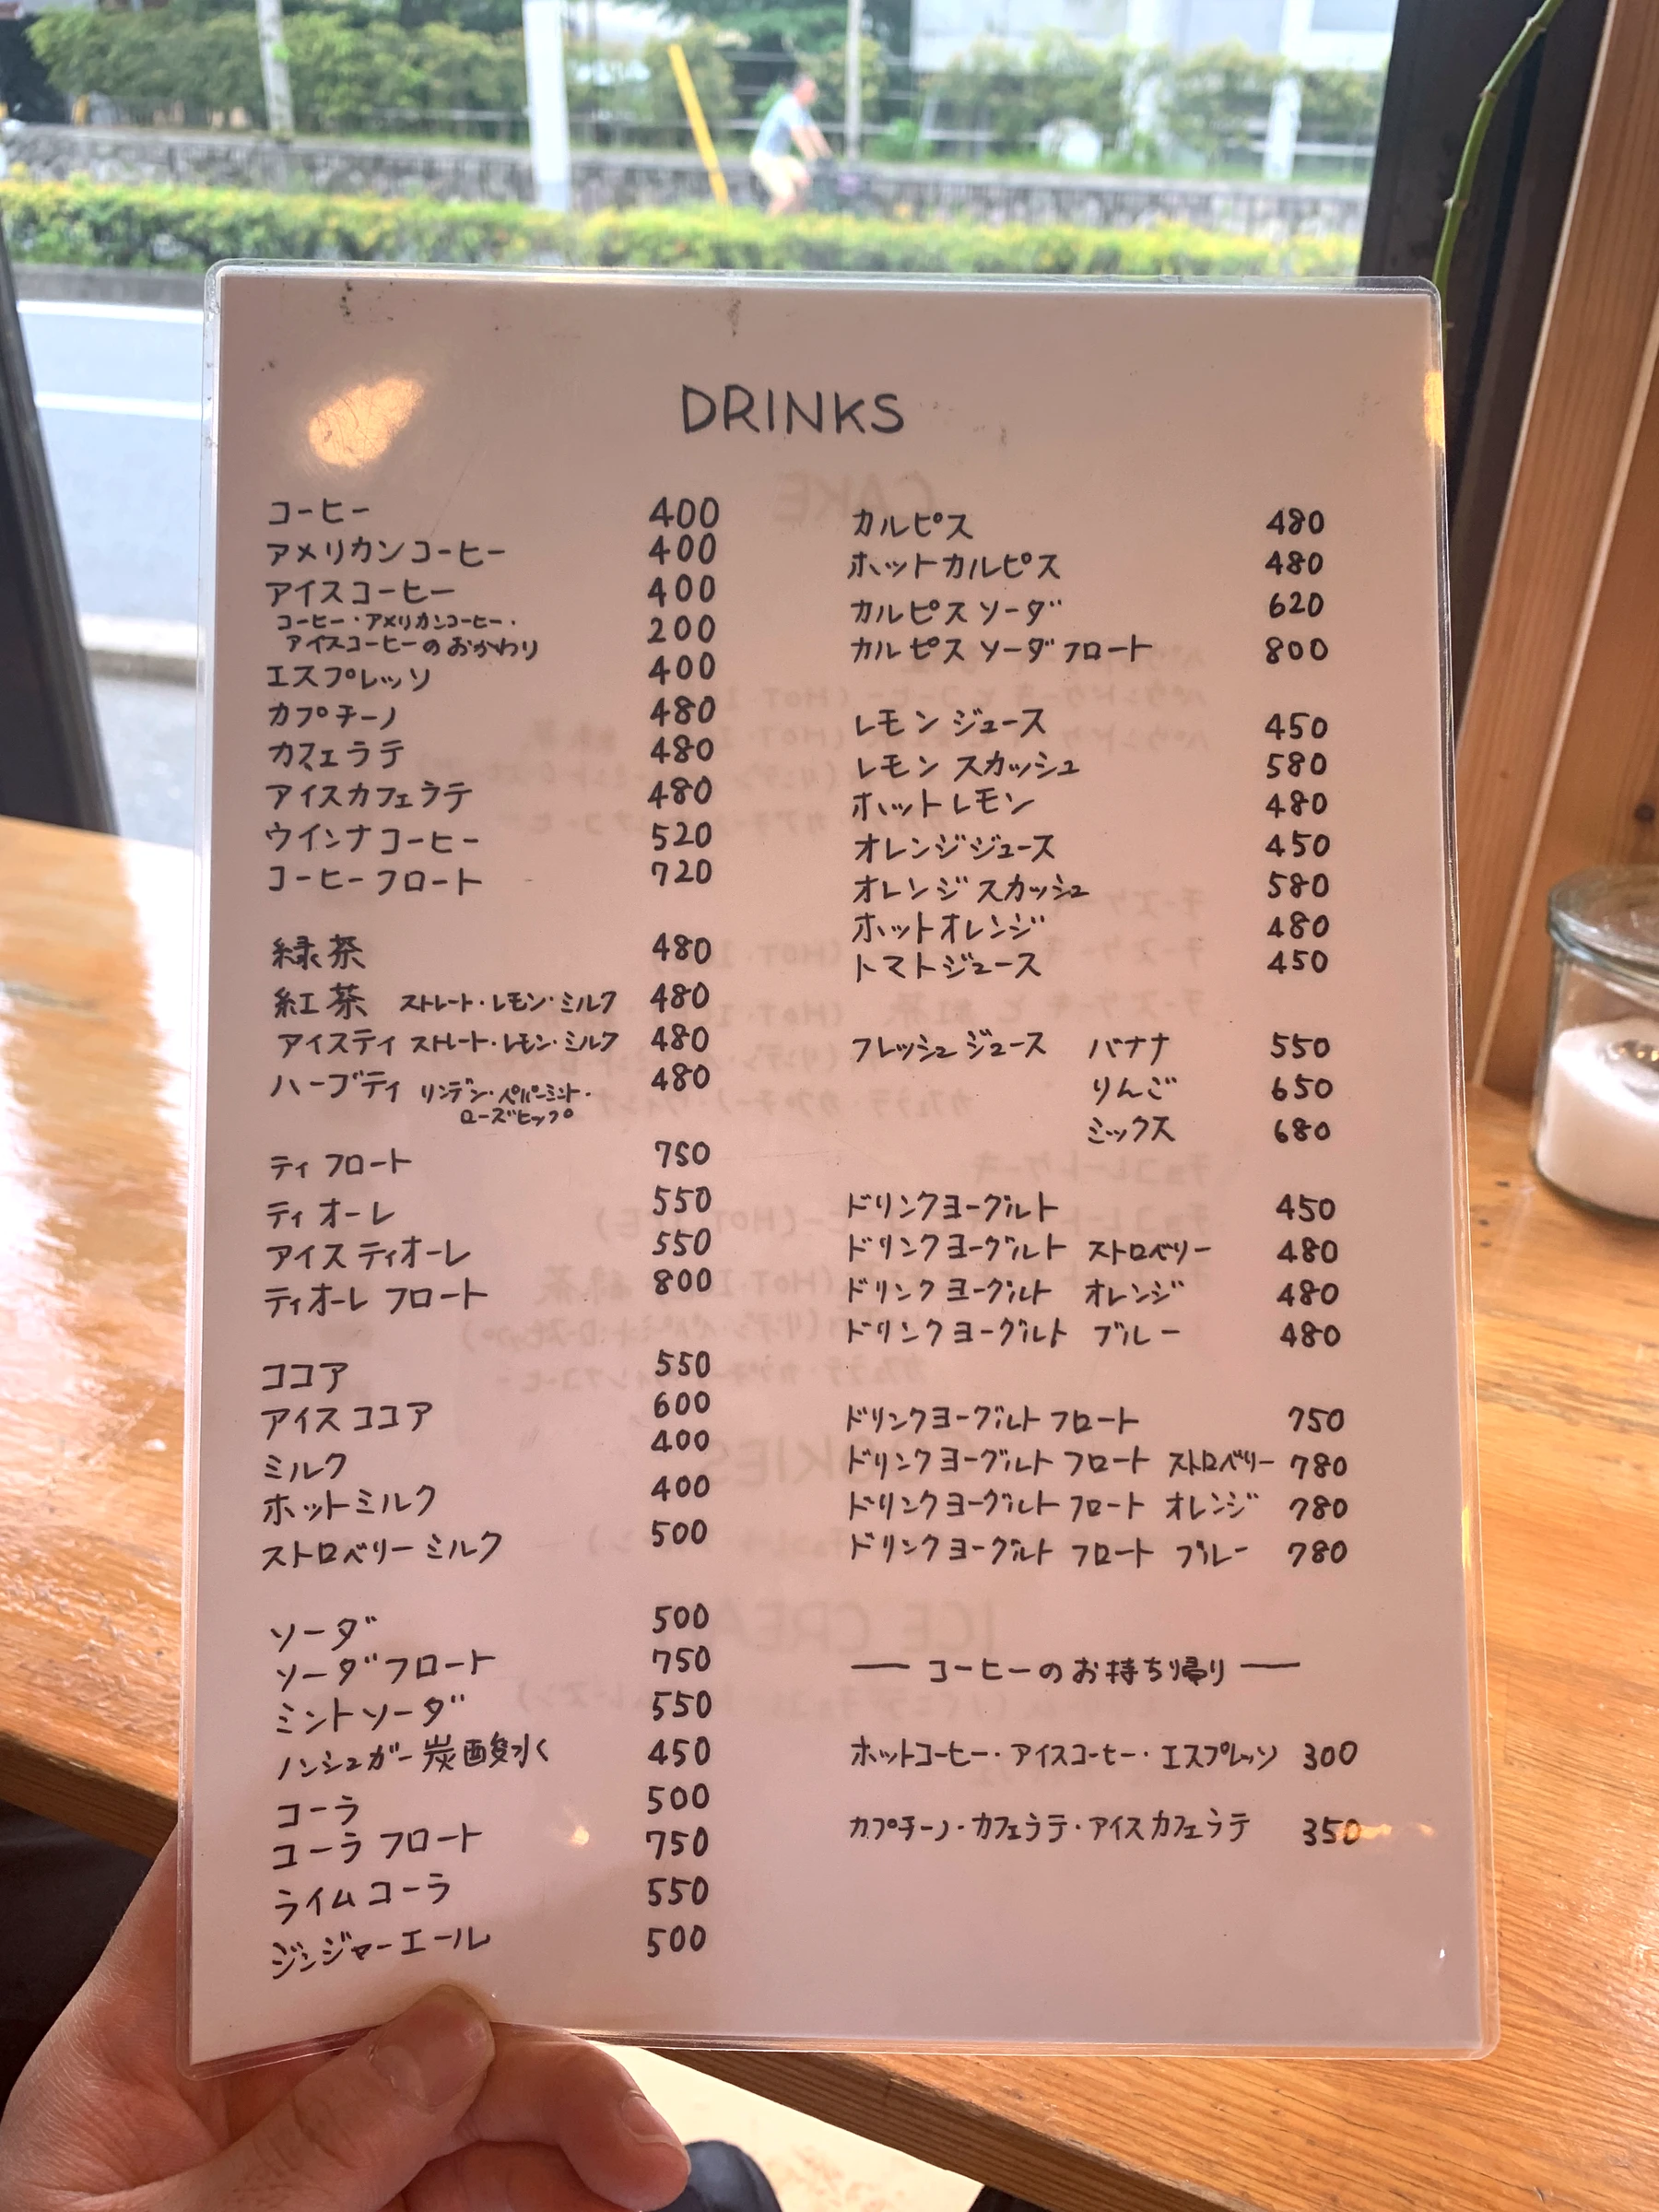 DRINKS
コーヒー 400
アメリカンコーヒー 400
アイスコーヒー 400
コーヒー・アメリカンコーヒー・
アイスコーヒーのおかわり 200
エスプレッソ 400
カプチーノ 480
カフェラテ 480
アイスカフェラテ 480
ウインナコーヒー 520
コーヒーフロート 720
緑茶 480
紅茶 ストレート・レモン・ミルク 480
アイスティ ストレート・レモン・ミルク 480
ハーブティ リンデン・ペパーミント・ 480
ローズヒップ
ティフロート 750
ティオーレ 550
アイスティオーレ 550
ティオーレ フロート 800
ココア 550
アイスココア 600
ミルク 400
ホットミルク 400
ストロベリーミルク 500
ソーダ 500
ソーダフロート 750
ミントソーダ 550
ノンシュガー炭酸水く 450
コーラ 500
コーラフロート 750
ライムコーラ 550
ジンジャーエール 500
カルピス 480
ホットカルピス 480
カルピスソーダ 620
カルピスソーダフロート 800
レモンジュース 450
レモンスカッシュ 580
ホットレモン 480
オレンジジュース 450
オレンジスカッシュ 580
ホットオレンジ 480
トマトジュース 450
フレッシュジュース バナナ 550
りんご 650
ミックス 680
ドリンクヨーグルト 450
ドリンクヨーグルト ストロベリー 480
ドリンクヨーグルト オレンジ 480
ドリンクヨーグルト ブルー 480
ドリンクヨーグルト フロート 750
ドリンクヨーグルト フロート ストロベリー 780
ドリンクヨーグルト フロート オレンジ 780
ドリンクヨーグルト フロート ブルー 780
― コーヒーのお持ち帰り ―
ホットコーヒー・アイスコーヒー・エスプレッソ 300
カプチーノ・カフェラテ・アイスカフェラテ 350